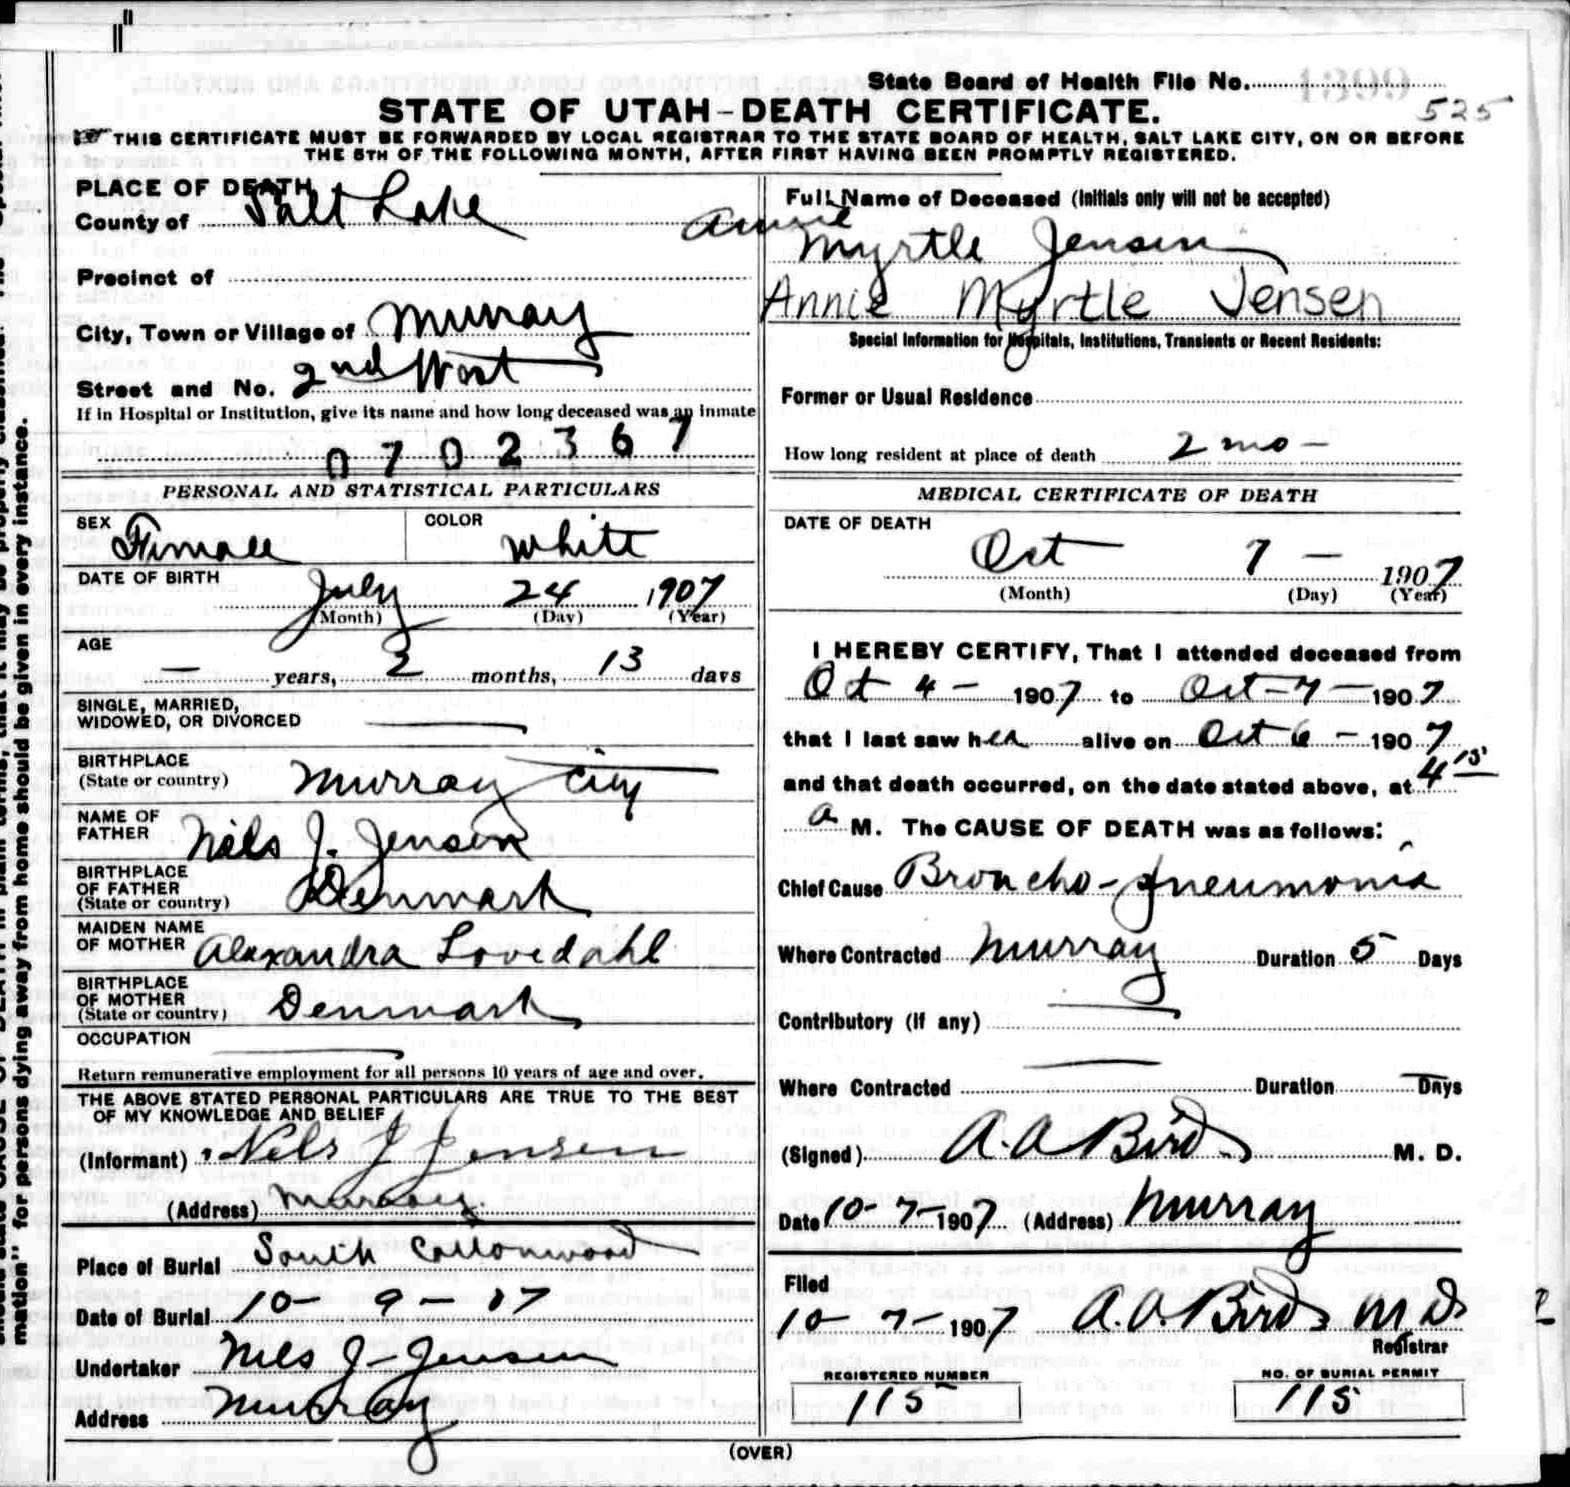 State Board of Health File No. 1399
525
STATE OF UTAH-DEATH CERTIFICATE.
THIS CERTIFICATE MUST BE FORWARDED BY LOCAL REGISTRAR TO THE STATE BOARD OF HEALTH, SALT LAKE CITY, ON OR BEFORE
THE 5TH OF THE FOLLOWING MONTH, AFTER FIRST HAVING BEEN PROMPTLY REGISTERED.
PLACE OF DEATH
County of Salt Lake
Precinct of
City, Town or Village of Murray
Street and No. 2nd West
If in Hospital or Institution, give its name and how long deceased was an inmate
0702367
PERSONAL AND STATISTICAL PARTICULARS
SEX Female COLOR White
DATE OF BIRTH July 24 1907
(Month) (Day) (Year)
AGE
— years, 2 months, 13 days
SINGLE, MARRIED,
WIDOWED, OR DIVORCED —
BIRTHPLACE
(State or country) Murray City
NAME OF
FATHER Niels J. Jensen
BIRTHPLACE
OF FATHER
(State or country) Denmark
MAIDEN NAME
OF MOTHER Alexandra Lovedahl
BIRTHPLACE
OF MOTHER
(State or country) Denmark
OCCUPATION —
Return remunerative employment for all persons 10 years of age and over.
THE ABOVE STATED PERSONAL PARTICULARS ARE TRUE TO THE BEST
OF MY KNOWLEDGE AND BELIEF
(Informant) Nels J Jensen
(Address) Murray.
Place of Burial South Cottonwood
Date of Burial 10 - 9 - 07
Undertaker Niels J- Jensen
Address Murray
Full Name of Deceased (Initials only will not be accepted)
Annie
Myrtle Jensen
Annie Myrtle Jensen
Special Information for Hospitals, Institutions, Transients or Recent Residents:
Former or Usual Residence
How long resident at place of death 2 mo -
MEDICAL CERTIFICATE OF DEATH
DATE OF DEATH
Oct 7 — 1907
(Month) (Day) (Year)
I HEREBY CERTIFY, That I attended deceased from
Oct 4 - 1907 to Oct - 7 - 1907
that I last saw her alive on Oct 6 - 1907
and that death occurred, on the date stated above, at 4 15
a M. The CAUSE OF DEATH was as follows:
Chief Cause Broncho-pneumonia
Where Contracted Murray Duration 5 Days
Contributory (if any) —
Where Contracted — Duration Days
(Signed) A. A Bird M. D.
Date 10-7-1907 (Address) Murray
Filed
10 - 7 - 1907 A. A. Bird M D
Registrar
REGISTERED NUMBER NO. OF BURIAL PERMIT
115 115
(OVER)
mation" for persons dying away from home should be given in every instance.